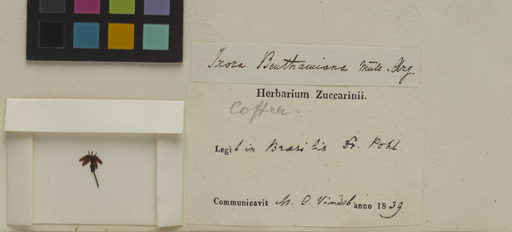 Ixora Benthamiana Müll. Arg.
Herbarium Zuccarinii.
Coffea.
Legit in Brasilia Dr. Pohl
Communicavit M. C. Vindob anno 1839